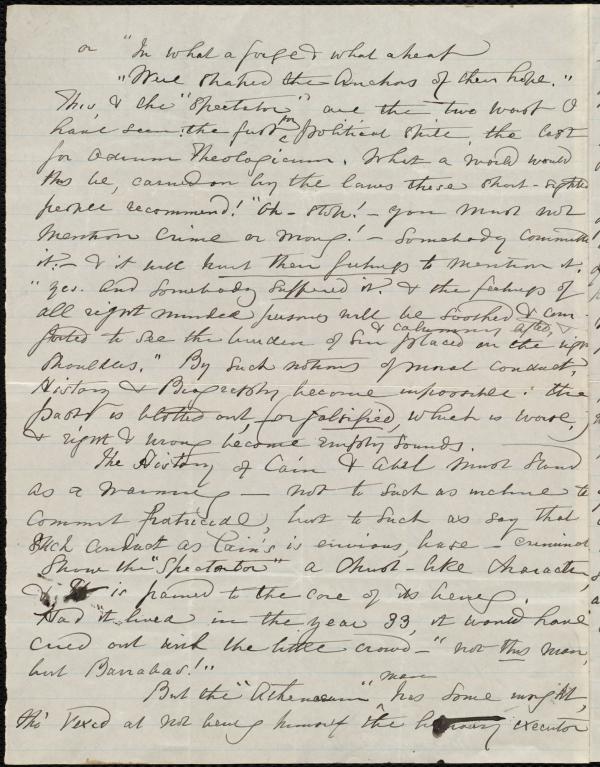 or "In what a forge & what a heat
"Were shaped the Anchors of their hope."
This, & the "Spectator" are the two worst I
have seen: the first for political spite, the last
for Odium Theologicum. What a world would
this be, carried on by the laws these short-sighted
people recommend! "Oh - stop! - you must not
mention crime or wrong! - Somebody committed
it. - & it will hurt their feelings to mention it.
"Yes. And somebody suffered it. & the feelings of
all right minded persons will be soothed & com-
forted to see the burden of Sin & calumny lifted, & placed on the right
shoulders." By such notions of moral conduct,
History & Biography become impossible: the
past is blotted out, (or falsified, which is worse,)
& right & wrong become empty sounds.
The History of Cain & Abel must stand
as a warning — not to such as incline to
commit fratricide, but to such as say that
such conduct as Cain's is envious, base - criminal
Show the "Spectator" a Christ-like character,
& it is pained to the core of its being.
Had it lived in the year 33, it would have
cried out with the little crowd - "not this man,
but Barrabas!"
But the "Athenaeum" man has some insight,
tho' vexed at not being himself the executor